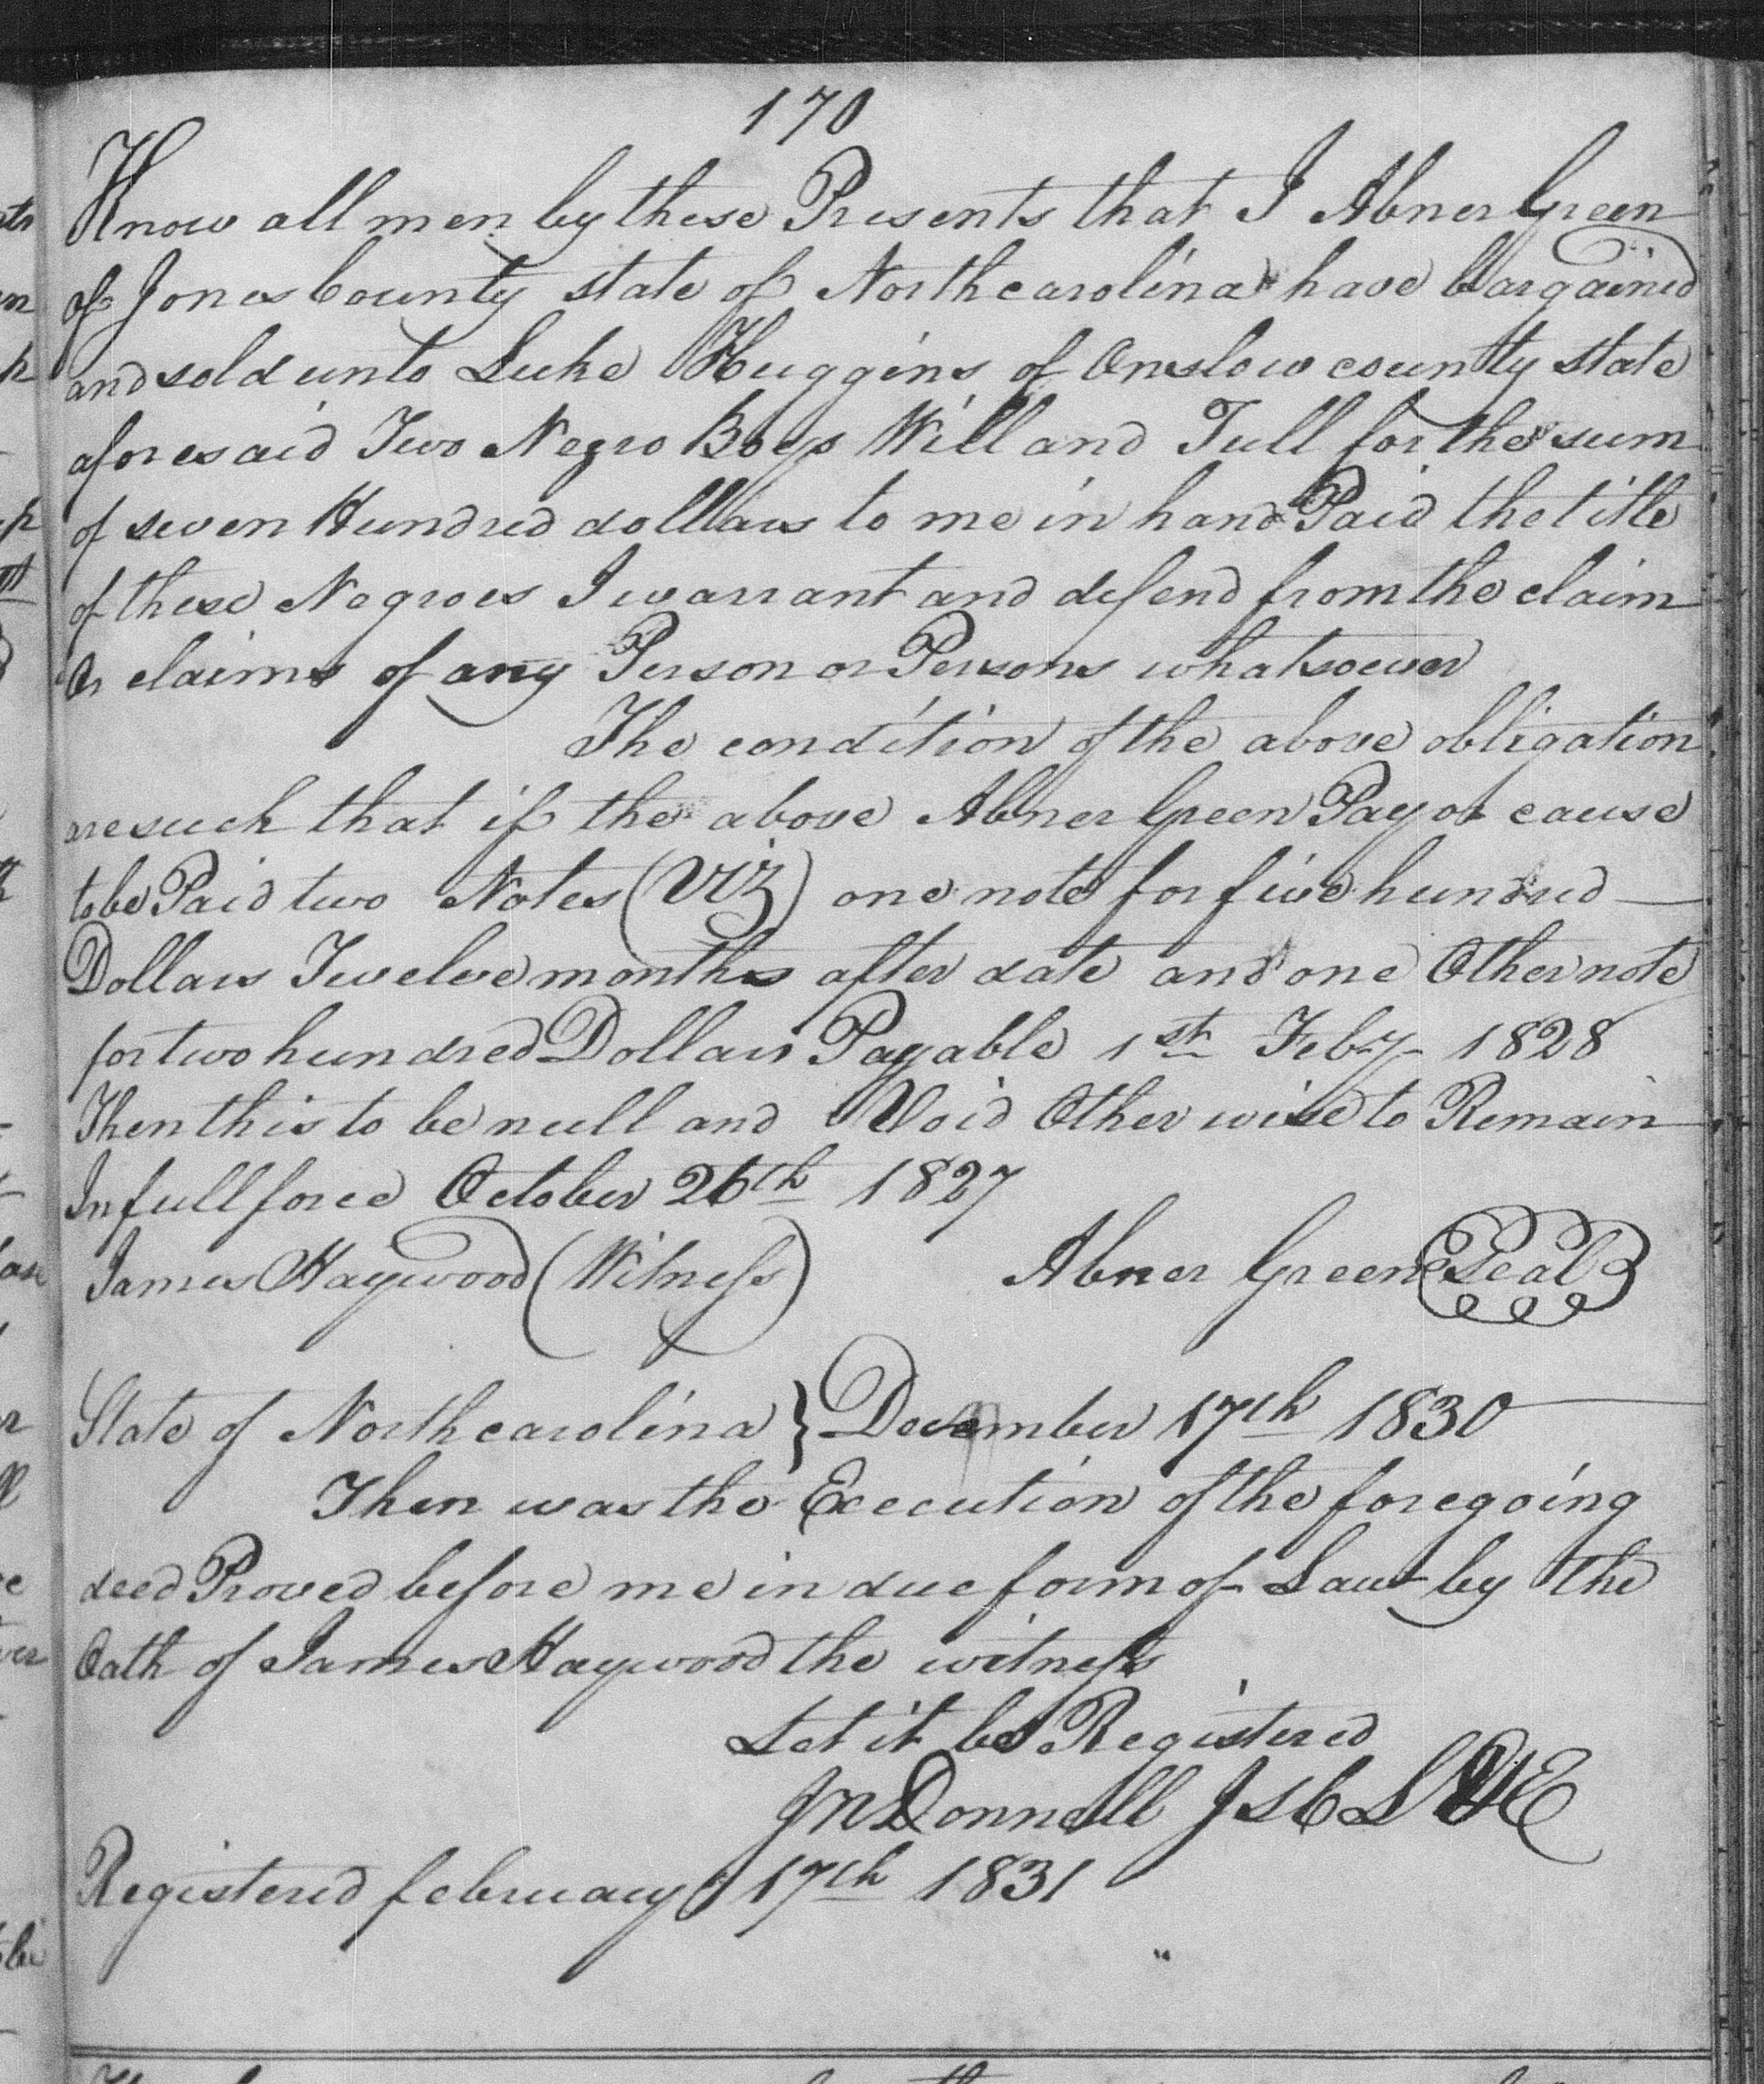 170
Know all men by these Presents that I Abner Green
of Jones County state of Northcarolina have bargained
and sold unto Luke Huggins of Onslow county state
aforesaid Two Negro Boys Will and Tull for the sum
of seven Hundred dollars to me in hand Paid the title
of these Negroes I warrant and defend from the claim
Or claims of any Person or Persons whatsoever
The condition of the above obligation
are such that if the above Abner Green Pay or cause
to be Paid two Notes (Viz) one note for five hundred
Dollars Twelve months after date and one Other note
for two hundred Dollars Payable 1st Feby 1828
Then this to be null and Void Other wise to Remain
In full force October 26th 1827
James Haywood (Witness) Abner Green Seal
State of Northcarolina } December 17th 1830
Then was the Execution of the foregoing
deed Proved before me in due form of Law by the
Oath of James Haywood the witness
Let it be Registered
Donnell J S C L & E
Registered february 17th 1831